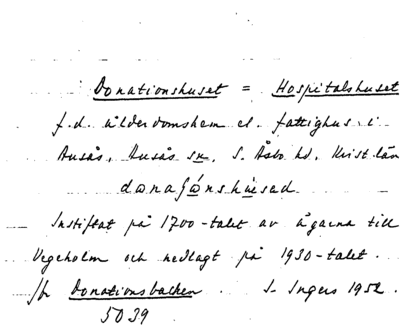 Donationshuset = Hospitalshuset
f.d. ålderdomshem el. fattighus i
Ausås, Ausås sn, S. Åsbo hd, Krist. län
Instiftat på 1700-talet av ägarna till
Vegeholm och nedlagt på 1930-talet.
Jfr Donationsbacken. I. Ingers 1952.
5039